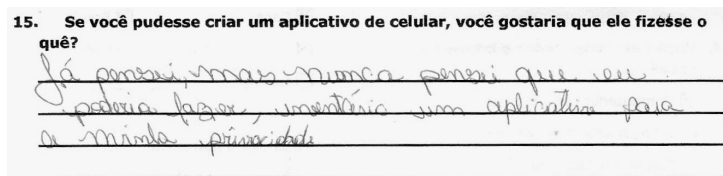 15. Se você pudesse criar um aplicativo de celular, você gostaria que ele fizesse o
quê?
Já pensei, mas nunca pensei que eu
poderia fazer, inventário um aplicativo para
a minha privacidade